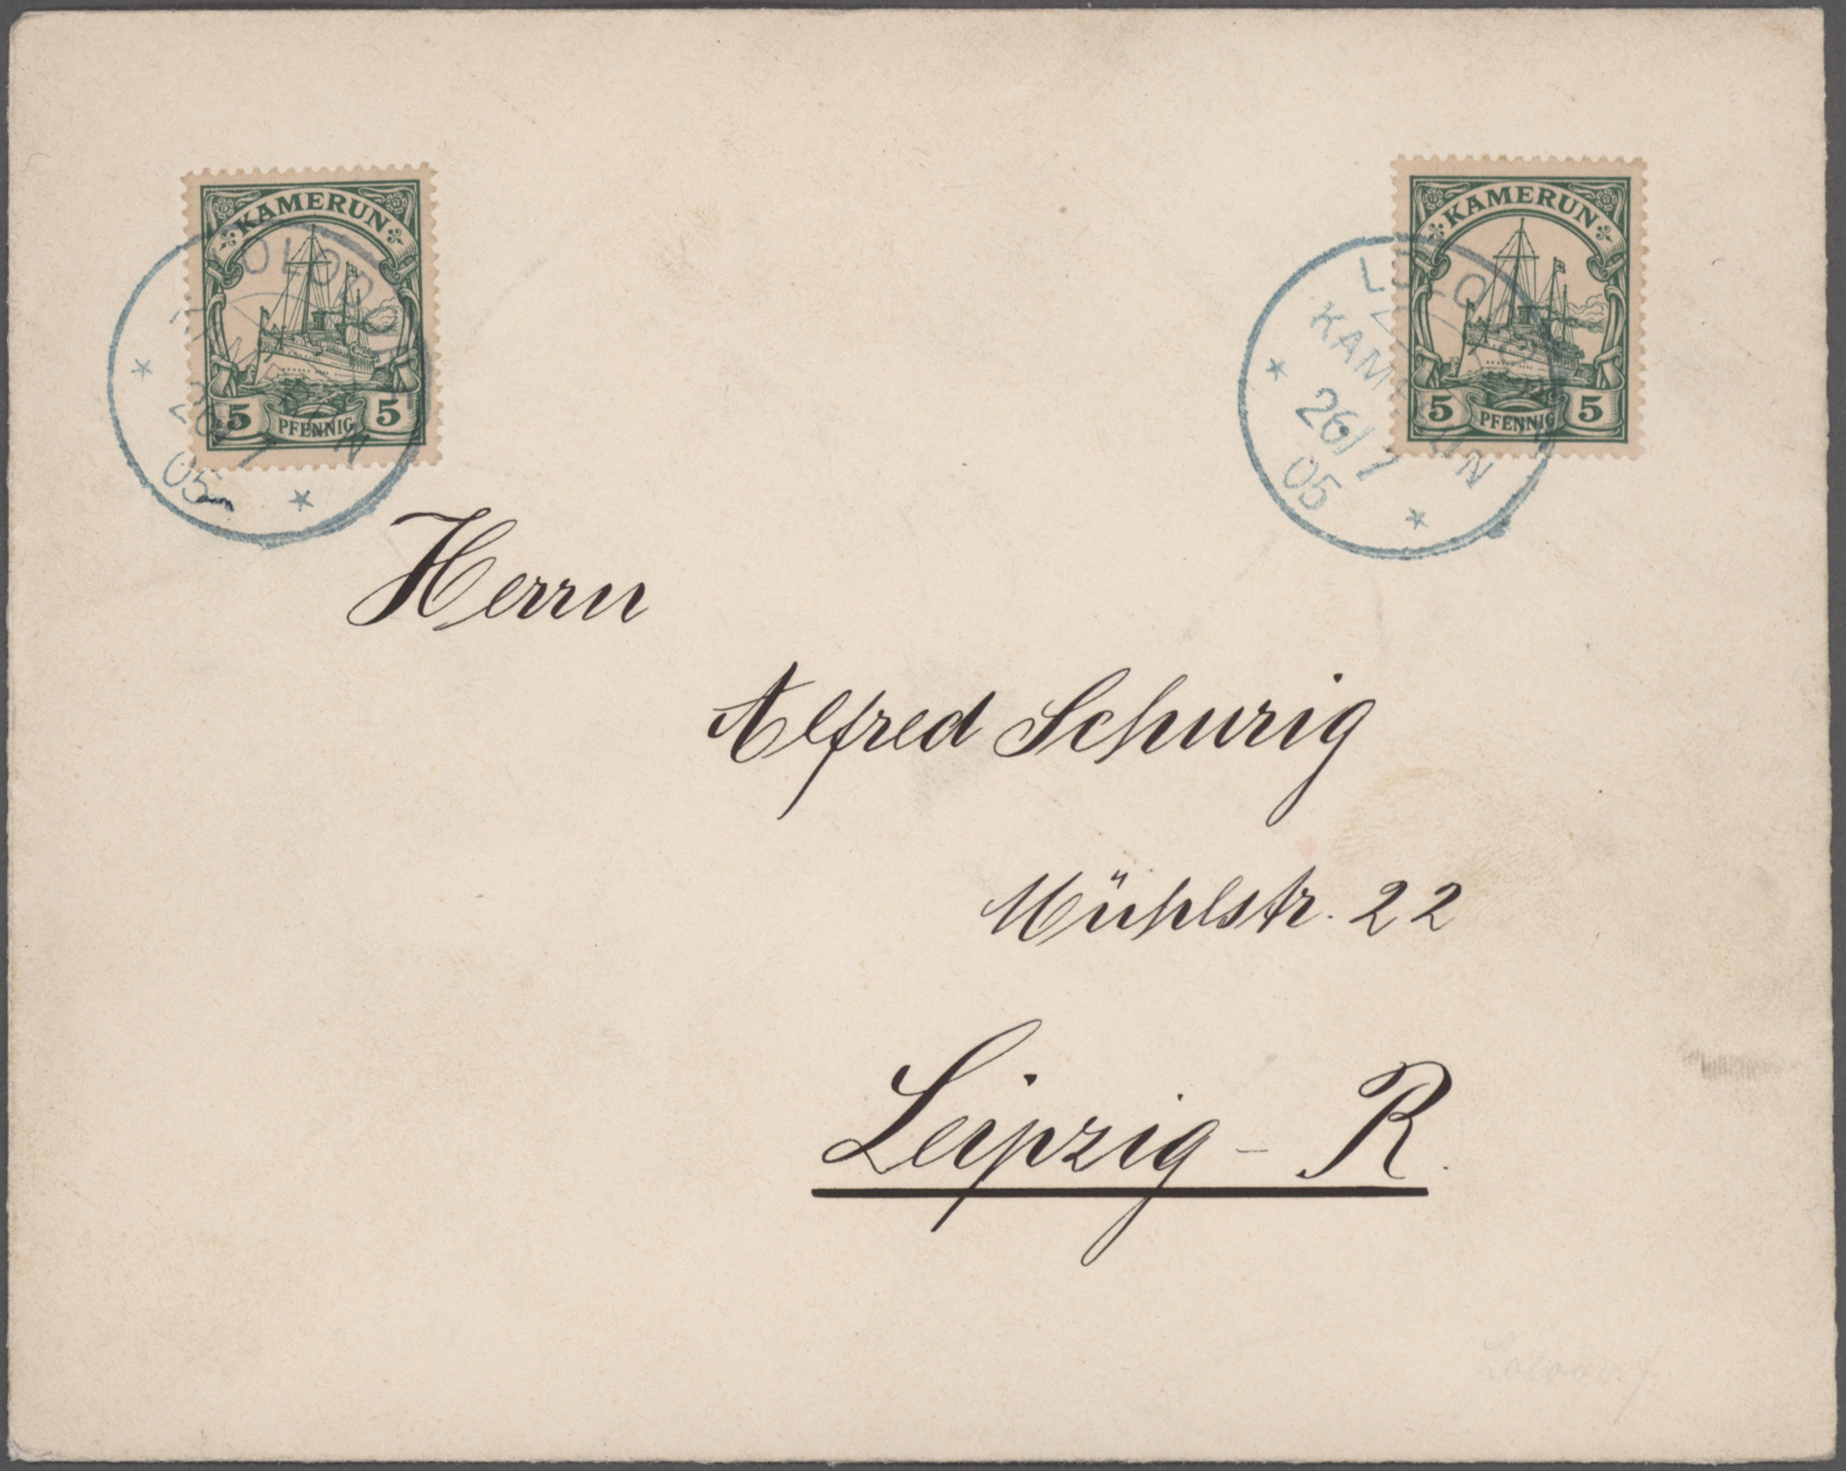 KAMERUN
5 PFENNIG 5
LOLODORF
KAMERUN
26/7
05
KAMERUN
5 PFENNIG 5
LOLODORF
KAMERUN
26/7
05
Herrn
Alfred Schurig
Mühlstr. 22
Leipzig - R.
Lolodorf